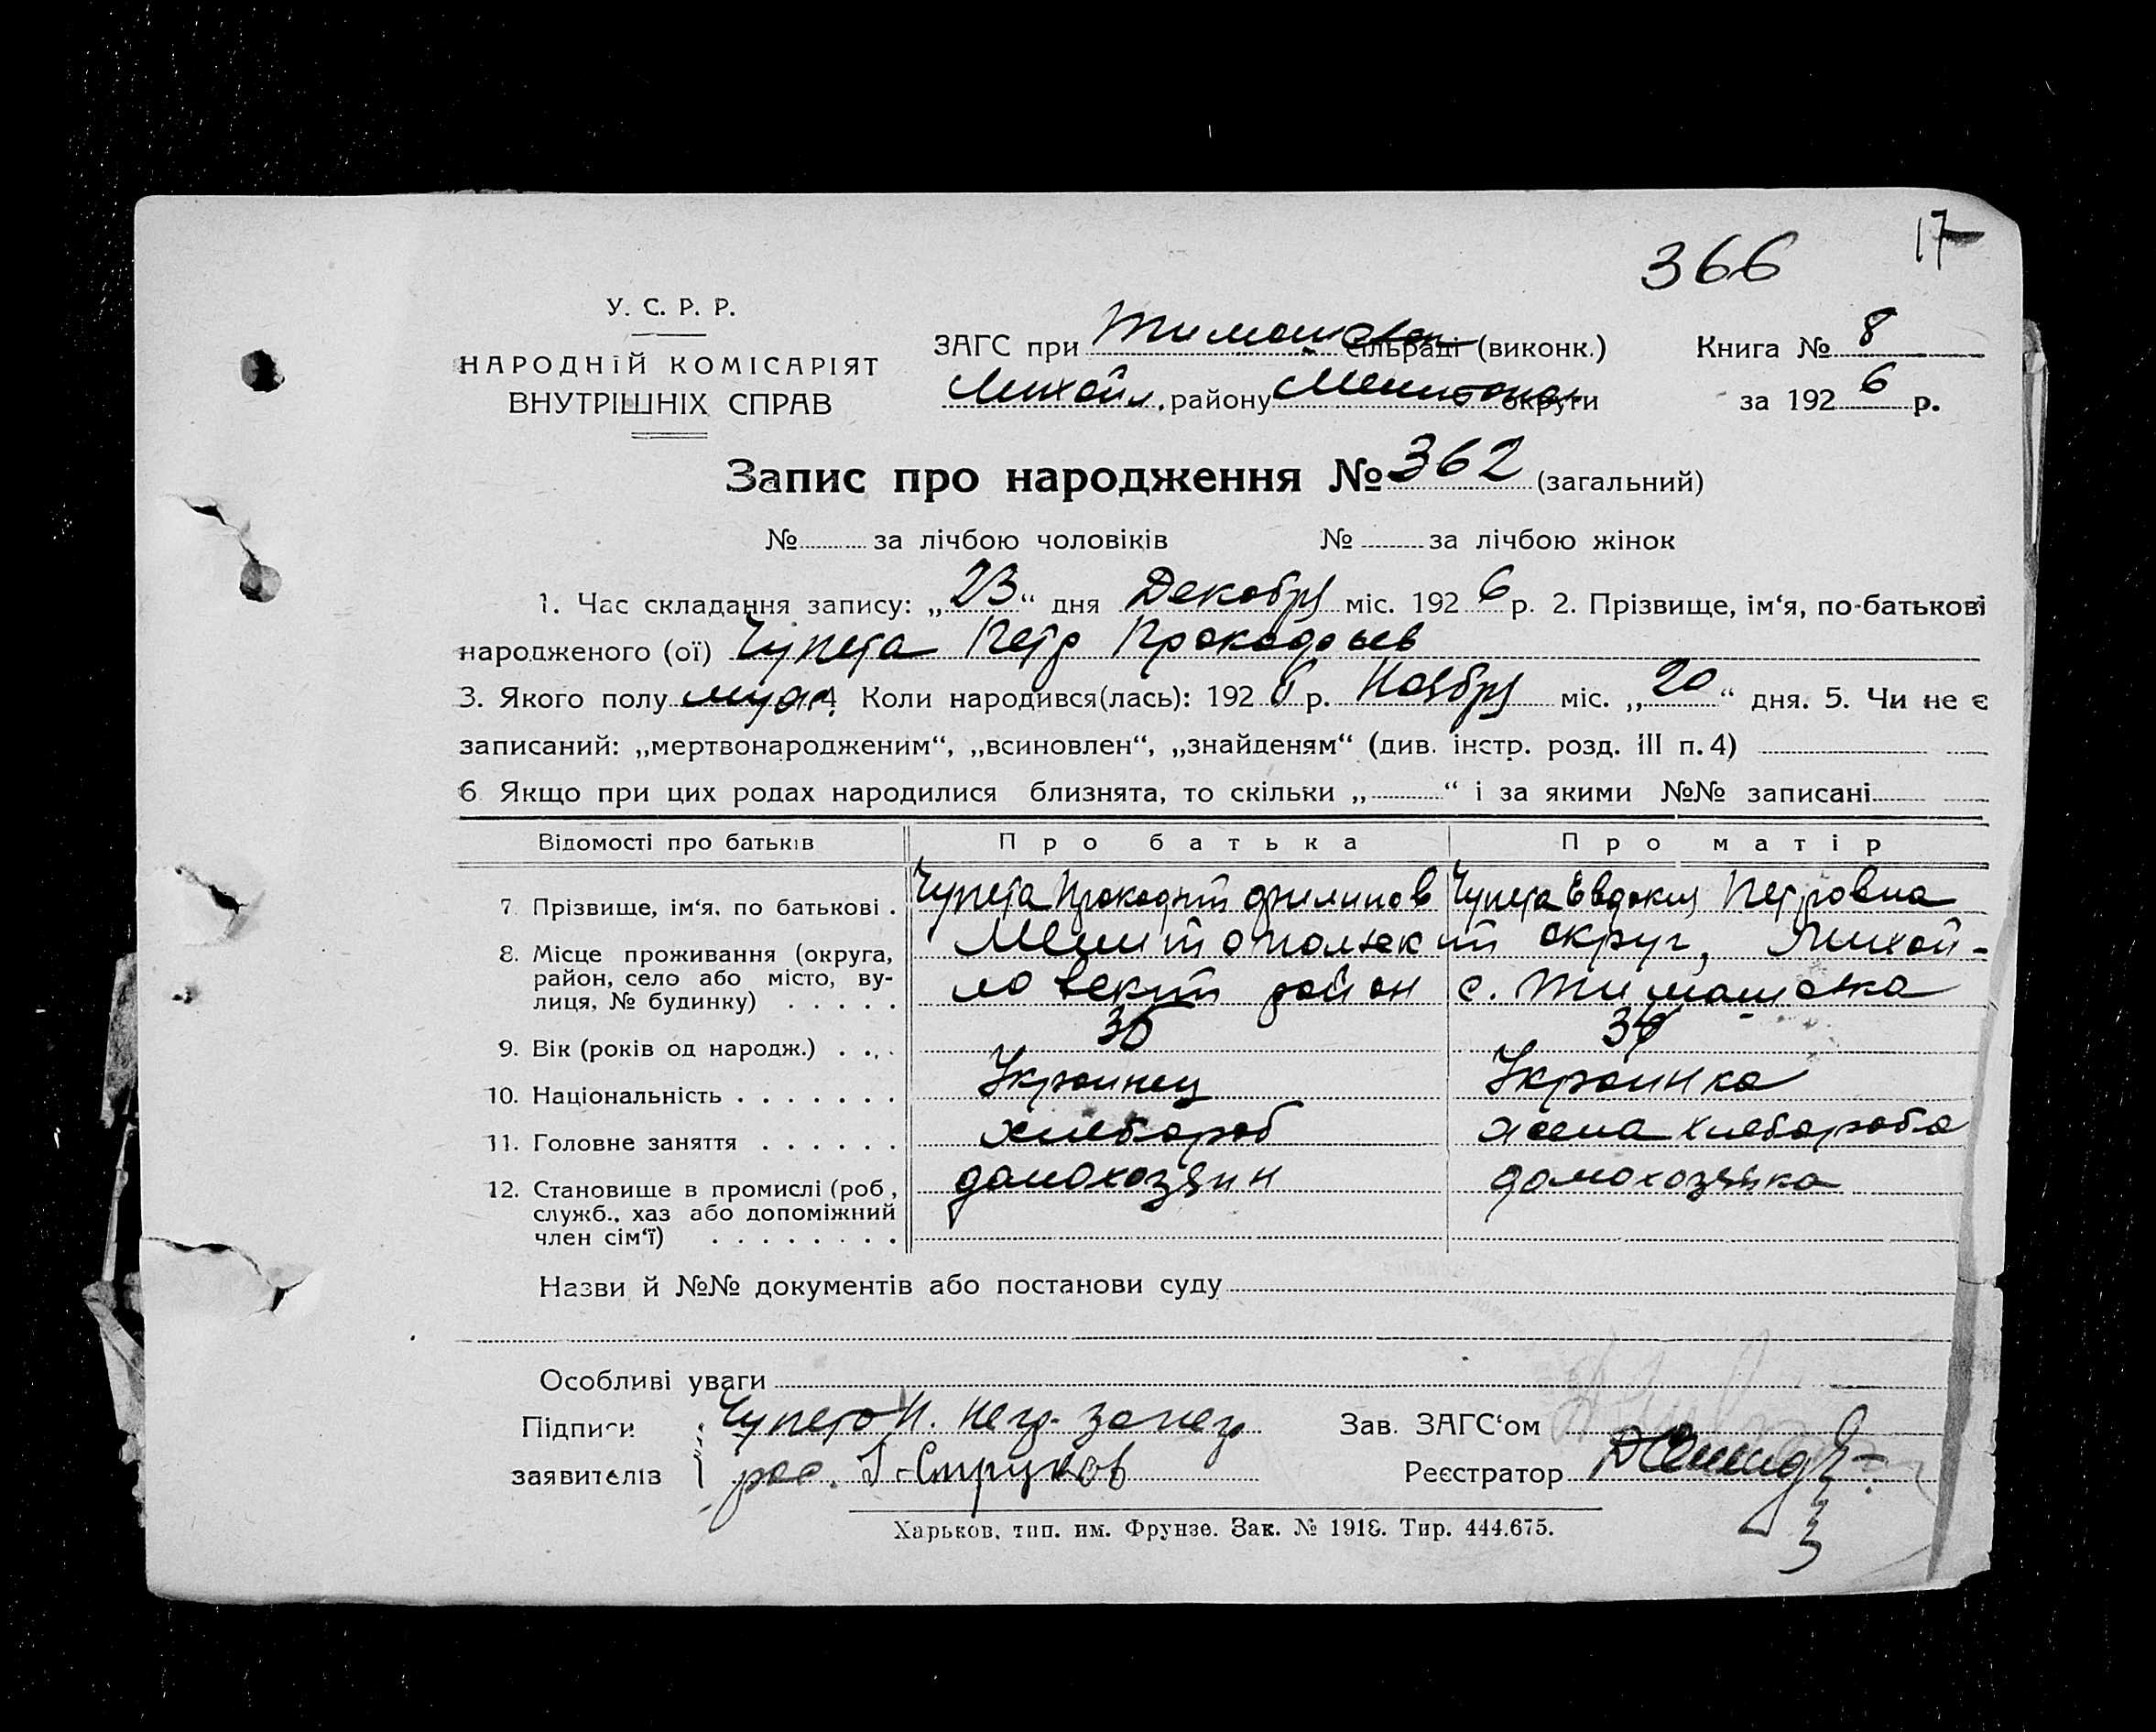 17
366
У. С. Р. Р.
НАРОДНІЙ КОМІСАРІЯТ
ВНУТРІШНІХ СПРАВ
ЗАГС при Тимошов сільраді (виконк.)
Книга № 8
Михайл. району Мелитопол округи
за 1926 р.
Запис про народження № 362 (загальний)
№ за лічбою чоловіків № за лічбою жінок
1. Час складання запису: „23“ дня Декабря міс. 1926 р. 2. Прізвище, ім‘я, по-батькові
народженого (ої) Чупета Петр Прокофьев
3. Якого полу муж. 4 Коли народився(лась): 1926 р. Ноября міс. „20“ дня. 5. Чи не є
записаний: „мертвонародженим“, „всиновлен“, „знайденям“ (див. інстр. розд. III п. 4)
6 Якщо при цих родах народилися близнята, то скільки „ “ і за якими №№ записані
Відомості про батьків Про батька Про матір
7. Прізвище, ім‘я, по батькові . Чупета Прокофий Филипов Чупета Евдокия Петровна
8. Місце проживання (округа, Мелитопольский округ, Михай-
район, село або місто, ву-
лиця, № будинку) ловский район с. Тимошовка
9. Вік (років од народж.) 36
10. Національність Украинец Украинка
11. Головне заняття хлебороб жена хлебороба
12. Становище в промислі (роб, домохозяин домохозяйка
служб., хаз або допоміжний
член сім‘ї)
Назви й №№ документів або постанови суду
Особливі уваги
Підписи Чупета Н. негр.
Зав. ЗАГС‘ом
заявителів рос. Струков
Реєстратор
Харьков, тип. им. Фрунзе. Зак. № 1918. Тир. 444.675.